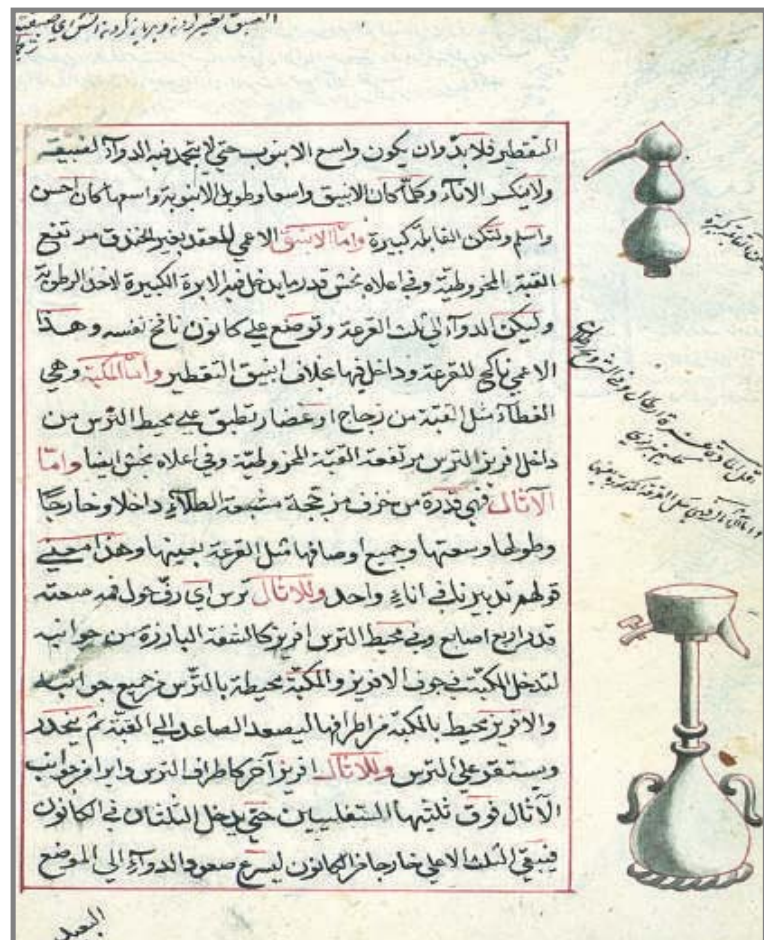 التقطير فلا بدّ وان يكون واسع الانبوب حتي لا يتجمد فيه الدوآء لضيقه
ولا ينكسر الانآء وكلما كان الانبيق واسعا وطويل الانبوبة واسعها كان احسن
واسلم ولتكن القابلة كبيرة وامّا الانبيق الاعمي للعقد بغير الخندق مرتفع
القبة المخروطية وفي اعلاه بخش قدر ما يدخل فيه الابرة الكبيرة لاخذ الرطوبة
وليكن الدوآء الي ثلث القرعة وتوضع علي كانون نافخ نفسه وهذا
الاعمي ناكح للقرعة وداخل فيها بخلاف انبيق التقطير وامّا المكبّة وهي
الغطآء مثل القبّة من زجاج او غضار تطبق علي محيط الترس من
داخل افريز الترس مرتفعة القبّة المخروطيّة وفي اعلاه بخش ايضا وامّا
الآثال فهي قدرة من خزف مزججة مشبعة الطلآء داخلا وخارجا
وطولها وسعتها وجميع اوصافها مثل القرعة بعينها وهذا معني
قولهم تدبيرنا في انآء واحد وللاثال ترس اي رفّ حول فمه صحته
قدر اربع اصابع وفي محيط الترس افريز كالشفة البارزة من جوانبه
لتدخل المكبّة في جوف الافريز والمكبّة محيطة بالترس من جميع جوانبه
والافريز محيط بالمكبّة من اطرافها ليصعد الصاعد الي القبّة ثم ينحدر
ويستقر علي الترس وللاثال افريز آخر كاطراف الترس دايرا من جوانب
الآثال فوق ثلثيها السفليين حتي يدخل الثلثان في الكانون
فيبقي الثلث الاعلي خارجا من الكانون ليسرع صعود الدوآء الي الموضع